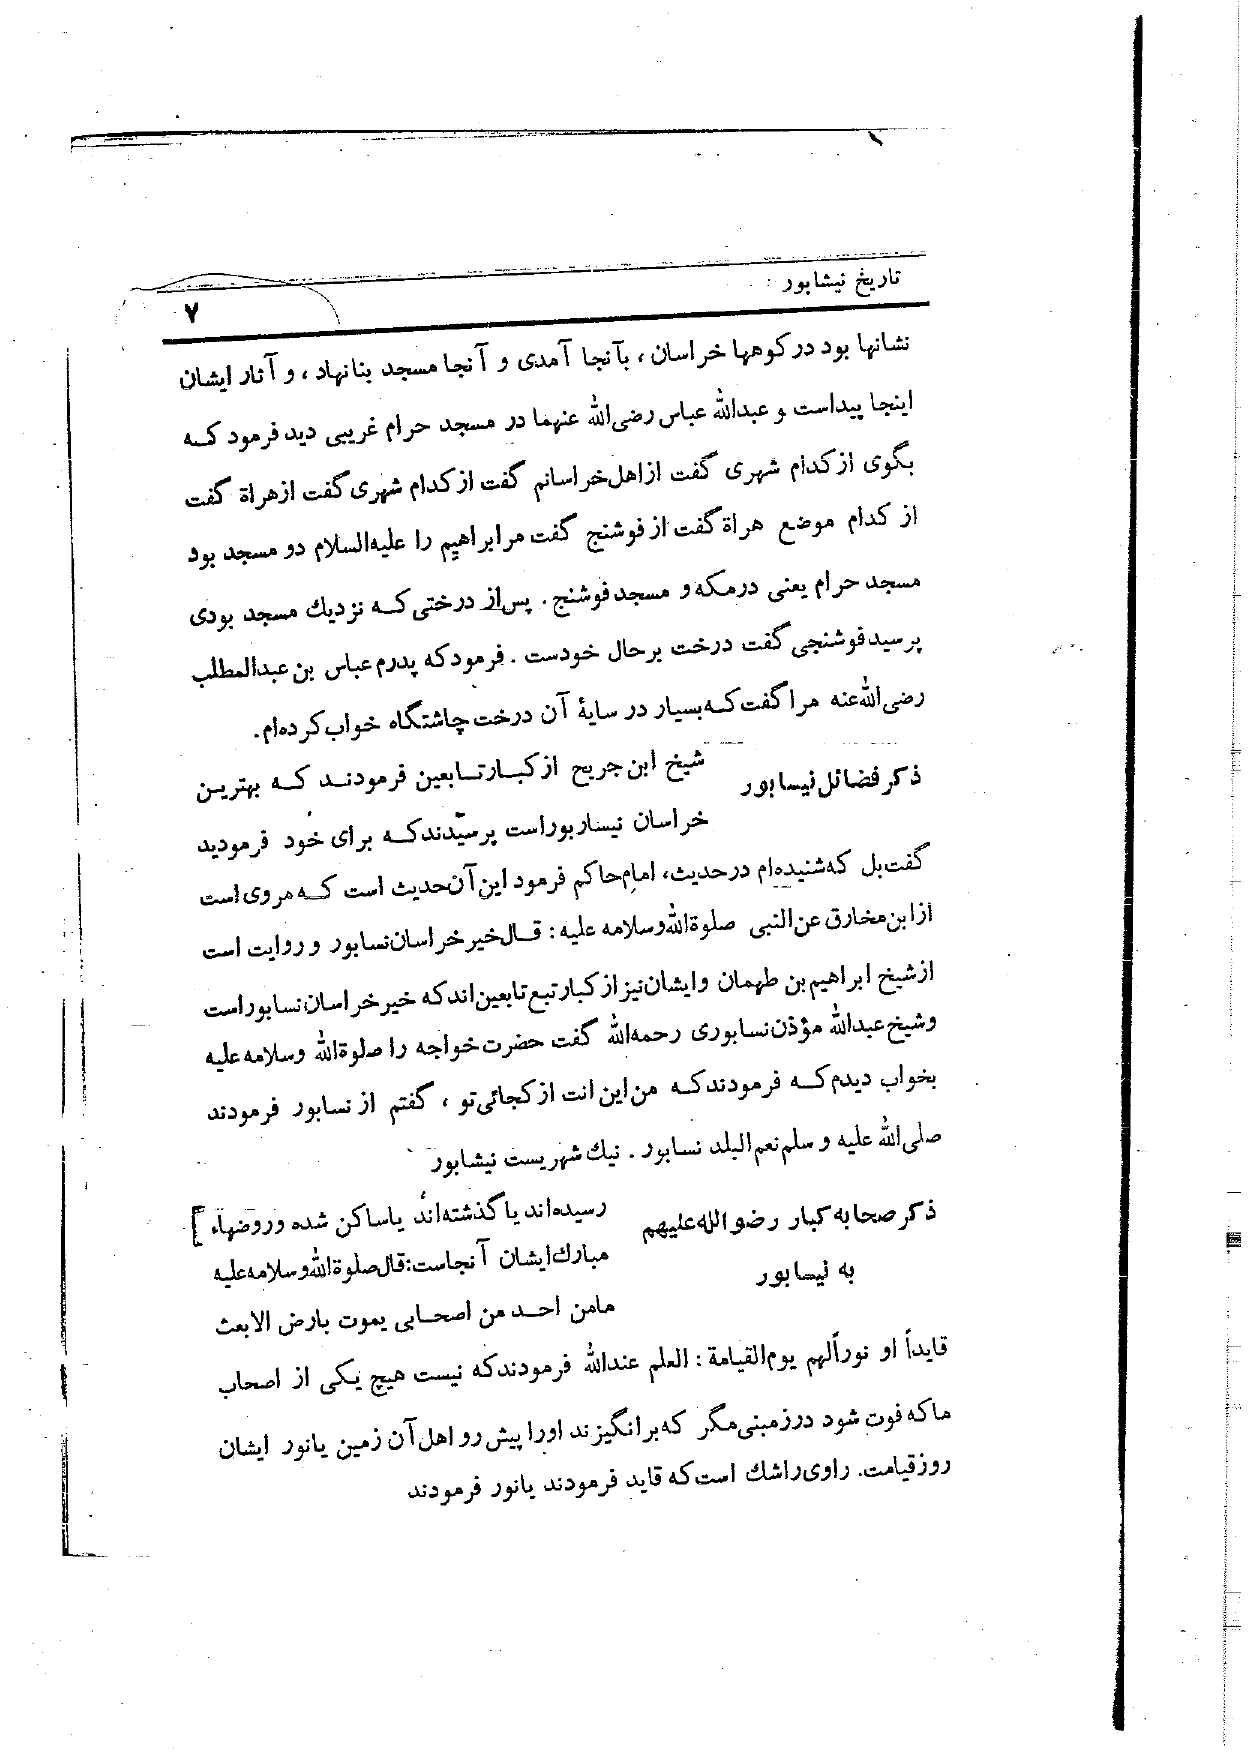 تاریخ نیشابور
۷
نشانها بود در کوهها خراسان ، بآنجا آمدی و آنجا مسجد بنانهاد ، و آثار ایشان
اینجا پیداست و عبدالله عباس رضی‌الله عنهما در مسجد حرام غریبی دید فرمود که
بگوی از کدام شهری گفت از اهل خراسانم گفت از کدام شهری گفت از هراة گفت
از کدام موضع هراة گفت از فوشنج گفت مر ابراهیم را علیه‌السلام دو مسجد بود
مسجد حرام یعنی در مکه و مسجد فوشنج . پس از درختی که نزدیك مسجد بودی
پرسید فوشنجی گفت درخت برحال خودست . فرمود که پدرم عباس بن عبدالمطلب
رضی‌الله‌عنه مرا گفت که بسیار در سایهٔ آن درخت چاشتگاه خواب کرده‌ام.
ذکر فضائل نیسابور
شیخ ابن جریح از کبار تابعین فرمودند که بهترین
خراسان نیسابور است پرسیدند که برای خود فرمودید
گفت بل که شنیده‌ام در حدیث، امام حاکم فرمود این آن حدیث است که مروی است
از ابن مخارق عن النبی صلوة‌الله وسلامه علیه : قال خیر خراسان نسابور و روایت است
از شیخ ابراهیم بن طهمان و ایشان نیز از کبار تبع تابعین‌اند که خیر خراسان نسابور است
و شیخ عبدالله مؤذن نسابوری رحمه‌الله گفت حضرت خواجه را صلوة‌الله وسلامه علیه
بخواب دیدم که فرمودند که من این انت از کجائی تو ، گفتم از نسابور فرمودند
صلی‌الله علیه و سلم نعم البلد نسابور . نیك شهریست نیشابور
ذکر صحابه کبار رضوالله علیهم
به نیسابور
رسیده‌اند یا گذشته‌اند یا ساکن شده و روضهاء [
مبارك ایشان آنجاست: قال صلوة‌الله وسلامه علیه
مامن احد من اصحابی یموت بارض الابعث
قایداً او نوراً لهم یوم القیامة : العلم عندالله فرمودند که نیست هیچ یکی از اصحاب
ما که فوت شود در زمینی مگر که برانگیزند او را پیش رو اهل آن زمین یا نور ایشان
روز قیامت. راوی را شك است که قاید فرمودند یا نور فرمودند